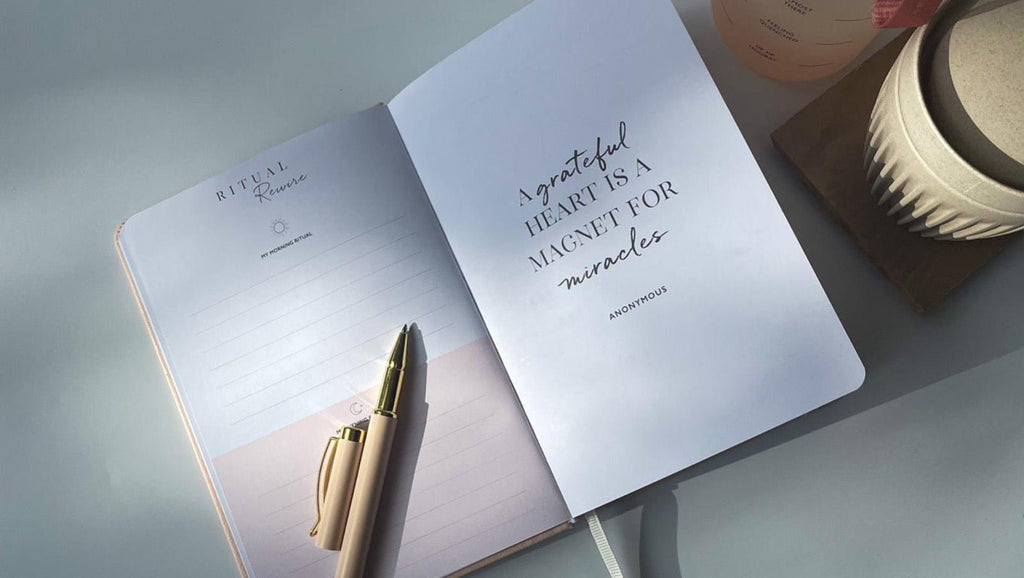 RITUAL
Rewire
MY MORNING RITUAL
A grateful
HEART IS A
MAGNET FOR
miracles
ANONYMOUS
THERE
FEELING